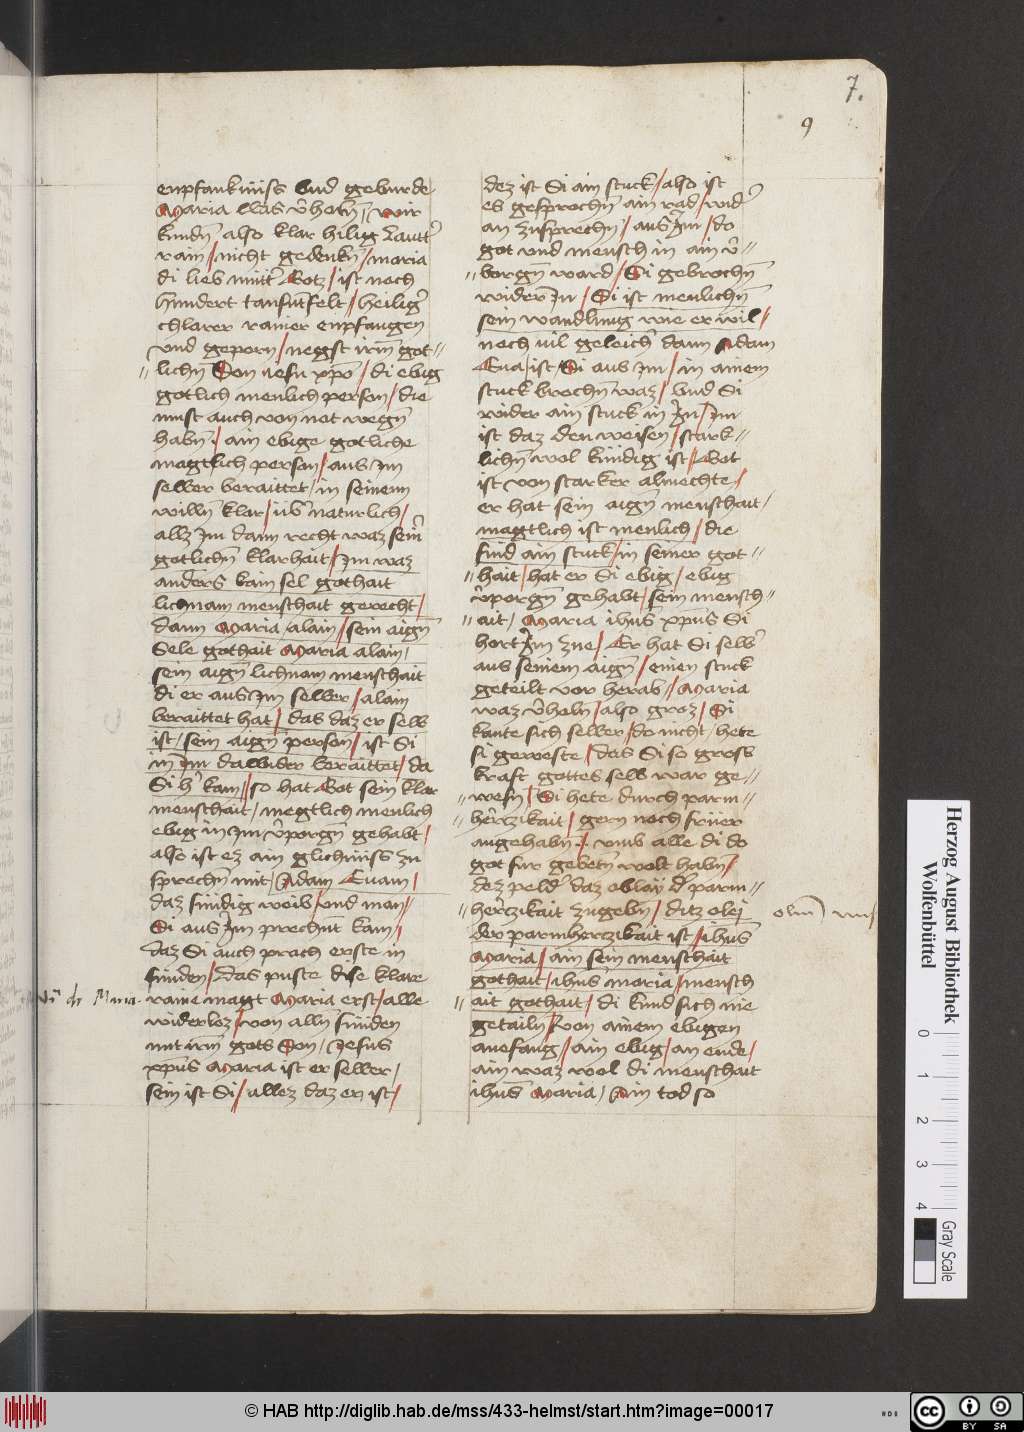 7.
9
enpfanknuss Vnd geburde
Maria was v̄holn̄ / wir
kundn̄ also klar hilig lautt̄
rain / nicht gedenkn̄ / maria
di lieb mutt̄ Gotz / ist noch
hundert tausūtfelt / heiliḡ
chlarer rainer enpfangen
vnd geporn / negst irm̄ got-
lichn̄ Son iesu xp̄o / di ebig
gotlich menlich person / die
must auch von not wegn̄
habn̄ / ain ebige gotliche
magtlich person / aus Im
selber beraittet / in seinem
willn̄ klar / vb̄ naturlich /
allz Im dann recht waz sein̄
gotlichn̄ klarhait / Im waz
anders kain sel gothait
lichnam menschait gerecht /
dann Maria / alain / sein aign̄
Sele gothait Maria alain /
sein aign̄ lichnam menschait
di er aus Im selber / alain
beraittet hat / das daz er selb
ist / sein aign̄ person̄ / ist Si
in Im da wider beraittet / da
Si h̄ kam / so hat Got sein klar
menschait / megtlich menlich
ebig in Im v̄porgn̄ gehabt /
also ist ez ain glichnuss zu
sprechn̄ mit / Adam Euam /
daz sundig weib / vnd man /
Si aus Im prechn̄t kam /
daz Si auch prach erste in
sunden / Das puste dise klare
raine magt Maria erst / alle
widerloz / von alln̄ sunden
mit irm̄ gots Son / Jesus
xp̄us Maria ist er selber /
sein ist Si / allez daz er ist /
dez ist Si ain stuck / also ist
es gesprochn̄ ain rad / wid̄
an zusprechn̄ / aus Im / do
got vnd mensch in ain v̄-
borgn̄ ward / Si gebrochn̄
wider In / Si ist menlichn̄
sein wandlung wie er wil /
noch vil geleich̄ dann Adam
Eua / ist Si aus Im / in ainem
stuck brochn̄ waz / Vnd Si
wider ain stuck in In / Im
ist daz den weisen / stark-
lichn̄ wol kundig ist / Got
ist von starker almechte /
er hat sein aign̄ menschait /
magtlich ist menlich / die
sind ain stuck / in seiner got-
hait / hat er Si ebig / ebug
v̄porgn̄ gehabt / sein mensch-
ait / Maria ihūs xp̄us Si
hort Im zue / Er hat Si selb̄
aus seinem aign̄ / einen stuck
geteilt vor herab / Maria
waz v̄holn / also groz / Si
kante sich selber / do nicht / hete
si geweste / das Si so gross
kraft gottes selb war ge-
wesn̄ / Si hete durch parm-
herczikait / gern noch fruer
angehabn̄ / vmb alle di do
got fur gebetn̄ wolt habn̄ /
dez peld̄ daz obloy d̄ parm-
herczikait zugebn̄ / ditz olei
der parmherczikait ist / ihūs
Maria / ain sein menschait
gothait / ihūs maria / mensch
ait gothait / di kind sich nie
getailn / von ainem ebigen
anefang / ain ebig / an ende /
ain waz wol di menschait
ihūs Maria / Ain tod so
Herzog August Bibliothek
Wolfenbüttel
0
1
2
3
4
Gray Scale
© HAB http://diglib.hab.de/mss/433-helmst/start.htm?image=00017
cc
BY
SA